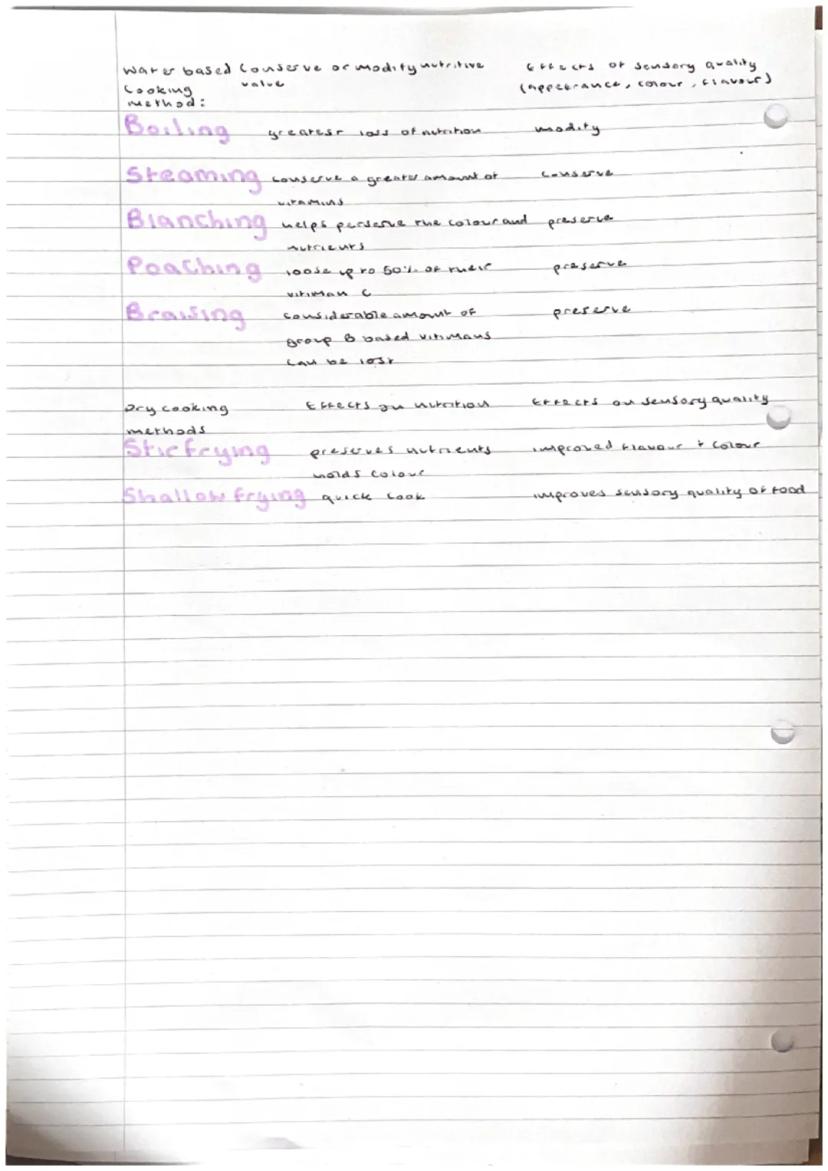 water based Conserve or modify nutritive Effects of sensory quality
Cooking value (appearance, colour, flavour)
method:
Boiling greatest loss of nutrition modify
Steaming conserve a greater amount of conserve
vitamins
Blanching helps perserve the colour and preserve
nutrients
Poaching loose up to 50% of their preserve
vitiman C
Braising considerable amount of preserve
group B based vitimans
can be lost
Dry cooking Effects on nutrition Effects on sensory quality
methods
Stir frying preserves nutrients improved flavour + colour
holds colour
Shallow frying quick cook improves sensory quality of food